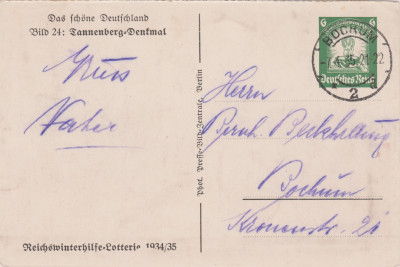 Das schöne Deutschland
Bild 24: Tannenberg-Denkmal
Gruss
Vater
Reichswinterhilfe-Lotterie 1934/35
Phot. Presse-Bild-Zentrale, Berlin
6 6
Deutsches Reich
BOCHUM
2
Herrn
Bernh.
Bochum
Kronenstr. 21